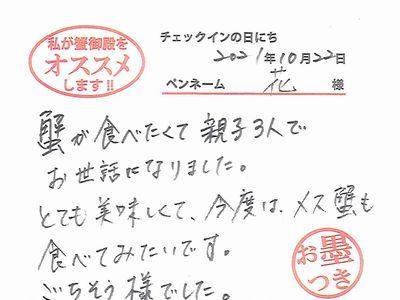 私が蟹御殿を
オススメ
します!!
チェックインの日にち
2021年10月22日
ペンネーム 花 様
蟹が食べたくて親子3人で
お世話になりました。
とても美味しくて、今度は、メス蟹も
食べてみたいです。
ごちそう様でした。
お墨
つき